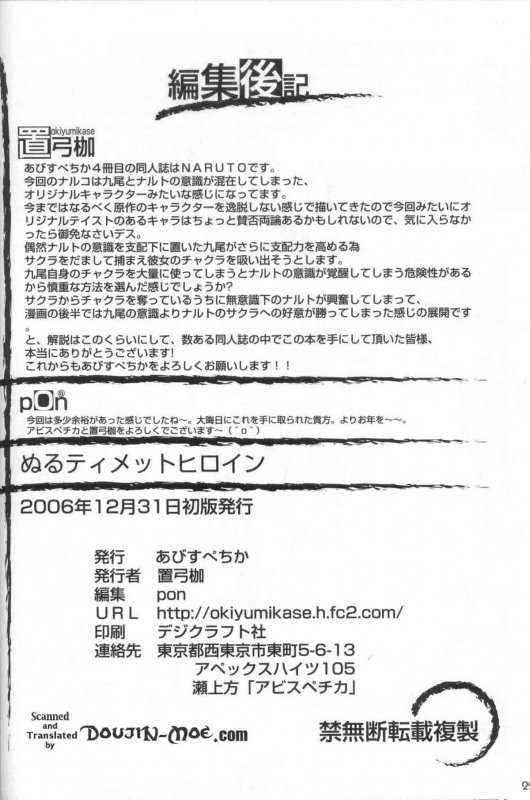 編集後記
okiyumikase
置弓枷
あびすぺちか4冊目の同人誌はNARUTOです。
今回のナルコは九尾とナルトの意識が混在してしまった、
オリジナルキャラクターみたいな感じになってます。
今まではなるべく原作のキャラクターを逸脱しない感じで描いてきたので今回みたいにオ
リジナルテイストのあるキャラはちょっと賛否両論あるかもしれないので、気に入らなか
ったら御免なさいデス。
偶然ナルトの意識を支配下に置いた九尾がさらに支配力を高める為
サクラをだまして捕まえ彼女のチャクラを吸い出そうとします。
九尾自身のチャクラを大量に使ってしまうとナルトの意識が覚醒してしまう危険性がある
から慎重な方法を選んだ感じでしょうか?
サクラからチャクラを奪っているうちに無意識下のナルトが興奮してしまって、
漫画の後半では九尾の意識よりナルトのサクラへの好意が勝ってしまった感じの展開です
。
と、解説はこのくらいにして、数ある同人誌の中でこの本を手にして頂いた皆様、
本当にありがとうございます!
これからもあびすぺちかをよろしくお願いします!!
pOn@
今回は多少余裕があった感じでしたね〜。大晦日にこれを手に取られた貴方。よりお年を〜〜。
アビスペチカと置弓枷をよろしくでございます〜(´o`)
ぬるティメットヒロイン
2006年12月31日初版発行
発行 あびすぺちか
発行者 置弓枷
編集 pon
URL http://okiyumikase.h.fc2.com/
印刷 デジクラフト社
連絡先 東京都西東京市東町5-6-13
アペックスハイツ105
瀬上方「アビスペチカ」
禁無断転載複製
Scanned
and
Translated
by
DOUJIN-MOE.com